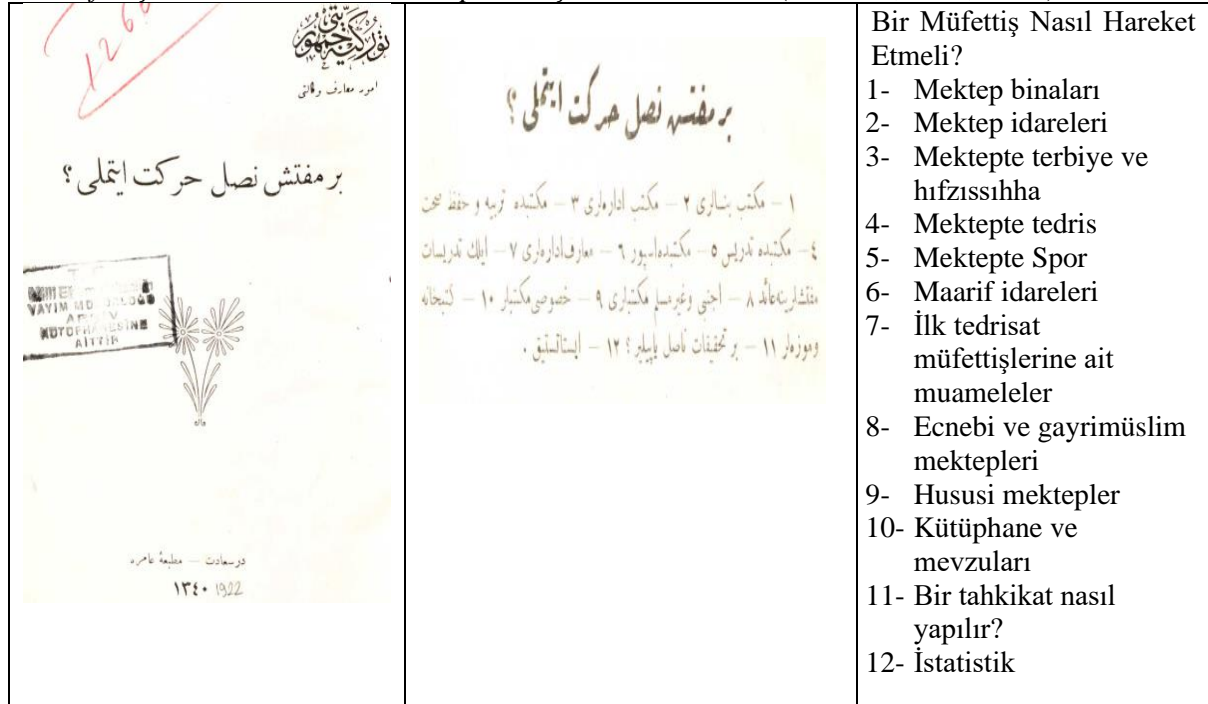 126
توركيه جمهوريتى
امور معارف وكالتى
بر مفتش نصل حركت ايتملى ؟
T. C.
YAYIM MÜDÜRLÜĞÜ
KÜTÜPHANESİNE
AİTTİR
درسعادت — مطبعهٔ عامره
١٣٤٠ 1922
بر مفتش نصل حركت ايتملى ؟
١ – مكتب بنالرى ٢ – مكتب اداره‌لرى ٣ – مكتبده تربيه و حفظ صحت
٤ – مكتبده تدريس ٥ – مكتبده اسپور ٦ – معارف اداره‌لرى ٧ – ايلك تدريسات
مفتشلرينه عائد ٨ – اجنبى وغيرمسلم مكتبلرى ٩ – خصوصى مكتبلر ١٠ – كتبخانه
وموزه‌لر ١١ – بر تحقيقات ناصل ياپيلير ؟ ١٢ – ايستاتستيق .
Bir Müfettiş Nasıl Hareket
Etmeli?
1- Mektep binaları
2- Mektep idareleri
3- Mektepte terbiye ve
hıfzıssıhha
4- Mektepte tedris
5- Mektepte Spor
6- Maarif idareleri
7- İlk tedrisat
müfettişlerine ait
muameleler
8- Ecnebi ve gayrimüslim
mektepleri
9- Hususi mektepler
10- Kütüphane ve
mevzuları
11- Bir tahkikat nasıl
yapılır?
12- İstatistik